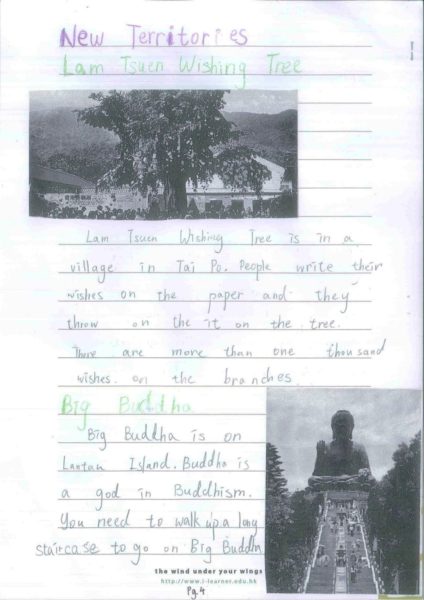 New Territories
Lam Tsuen Wishing Tree
Lam Tsuen Wishing Tree is in a
village in Tai Po. People write their
wishes on the paper and they
throw on the it on the tree.
There are more than one thousand
wishes. on the branches
Big Buddha
Big Buddha is on
Lantau Island. Buddha is
a god in Buddhism.
You need to walk up a long
staircase to go on Big Buddha.
the wind under your wings
http://www.i-learner.edu.hk
Pg.4